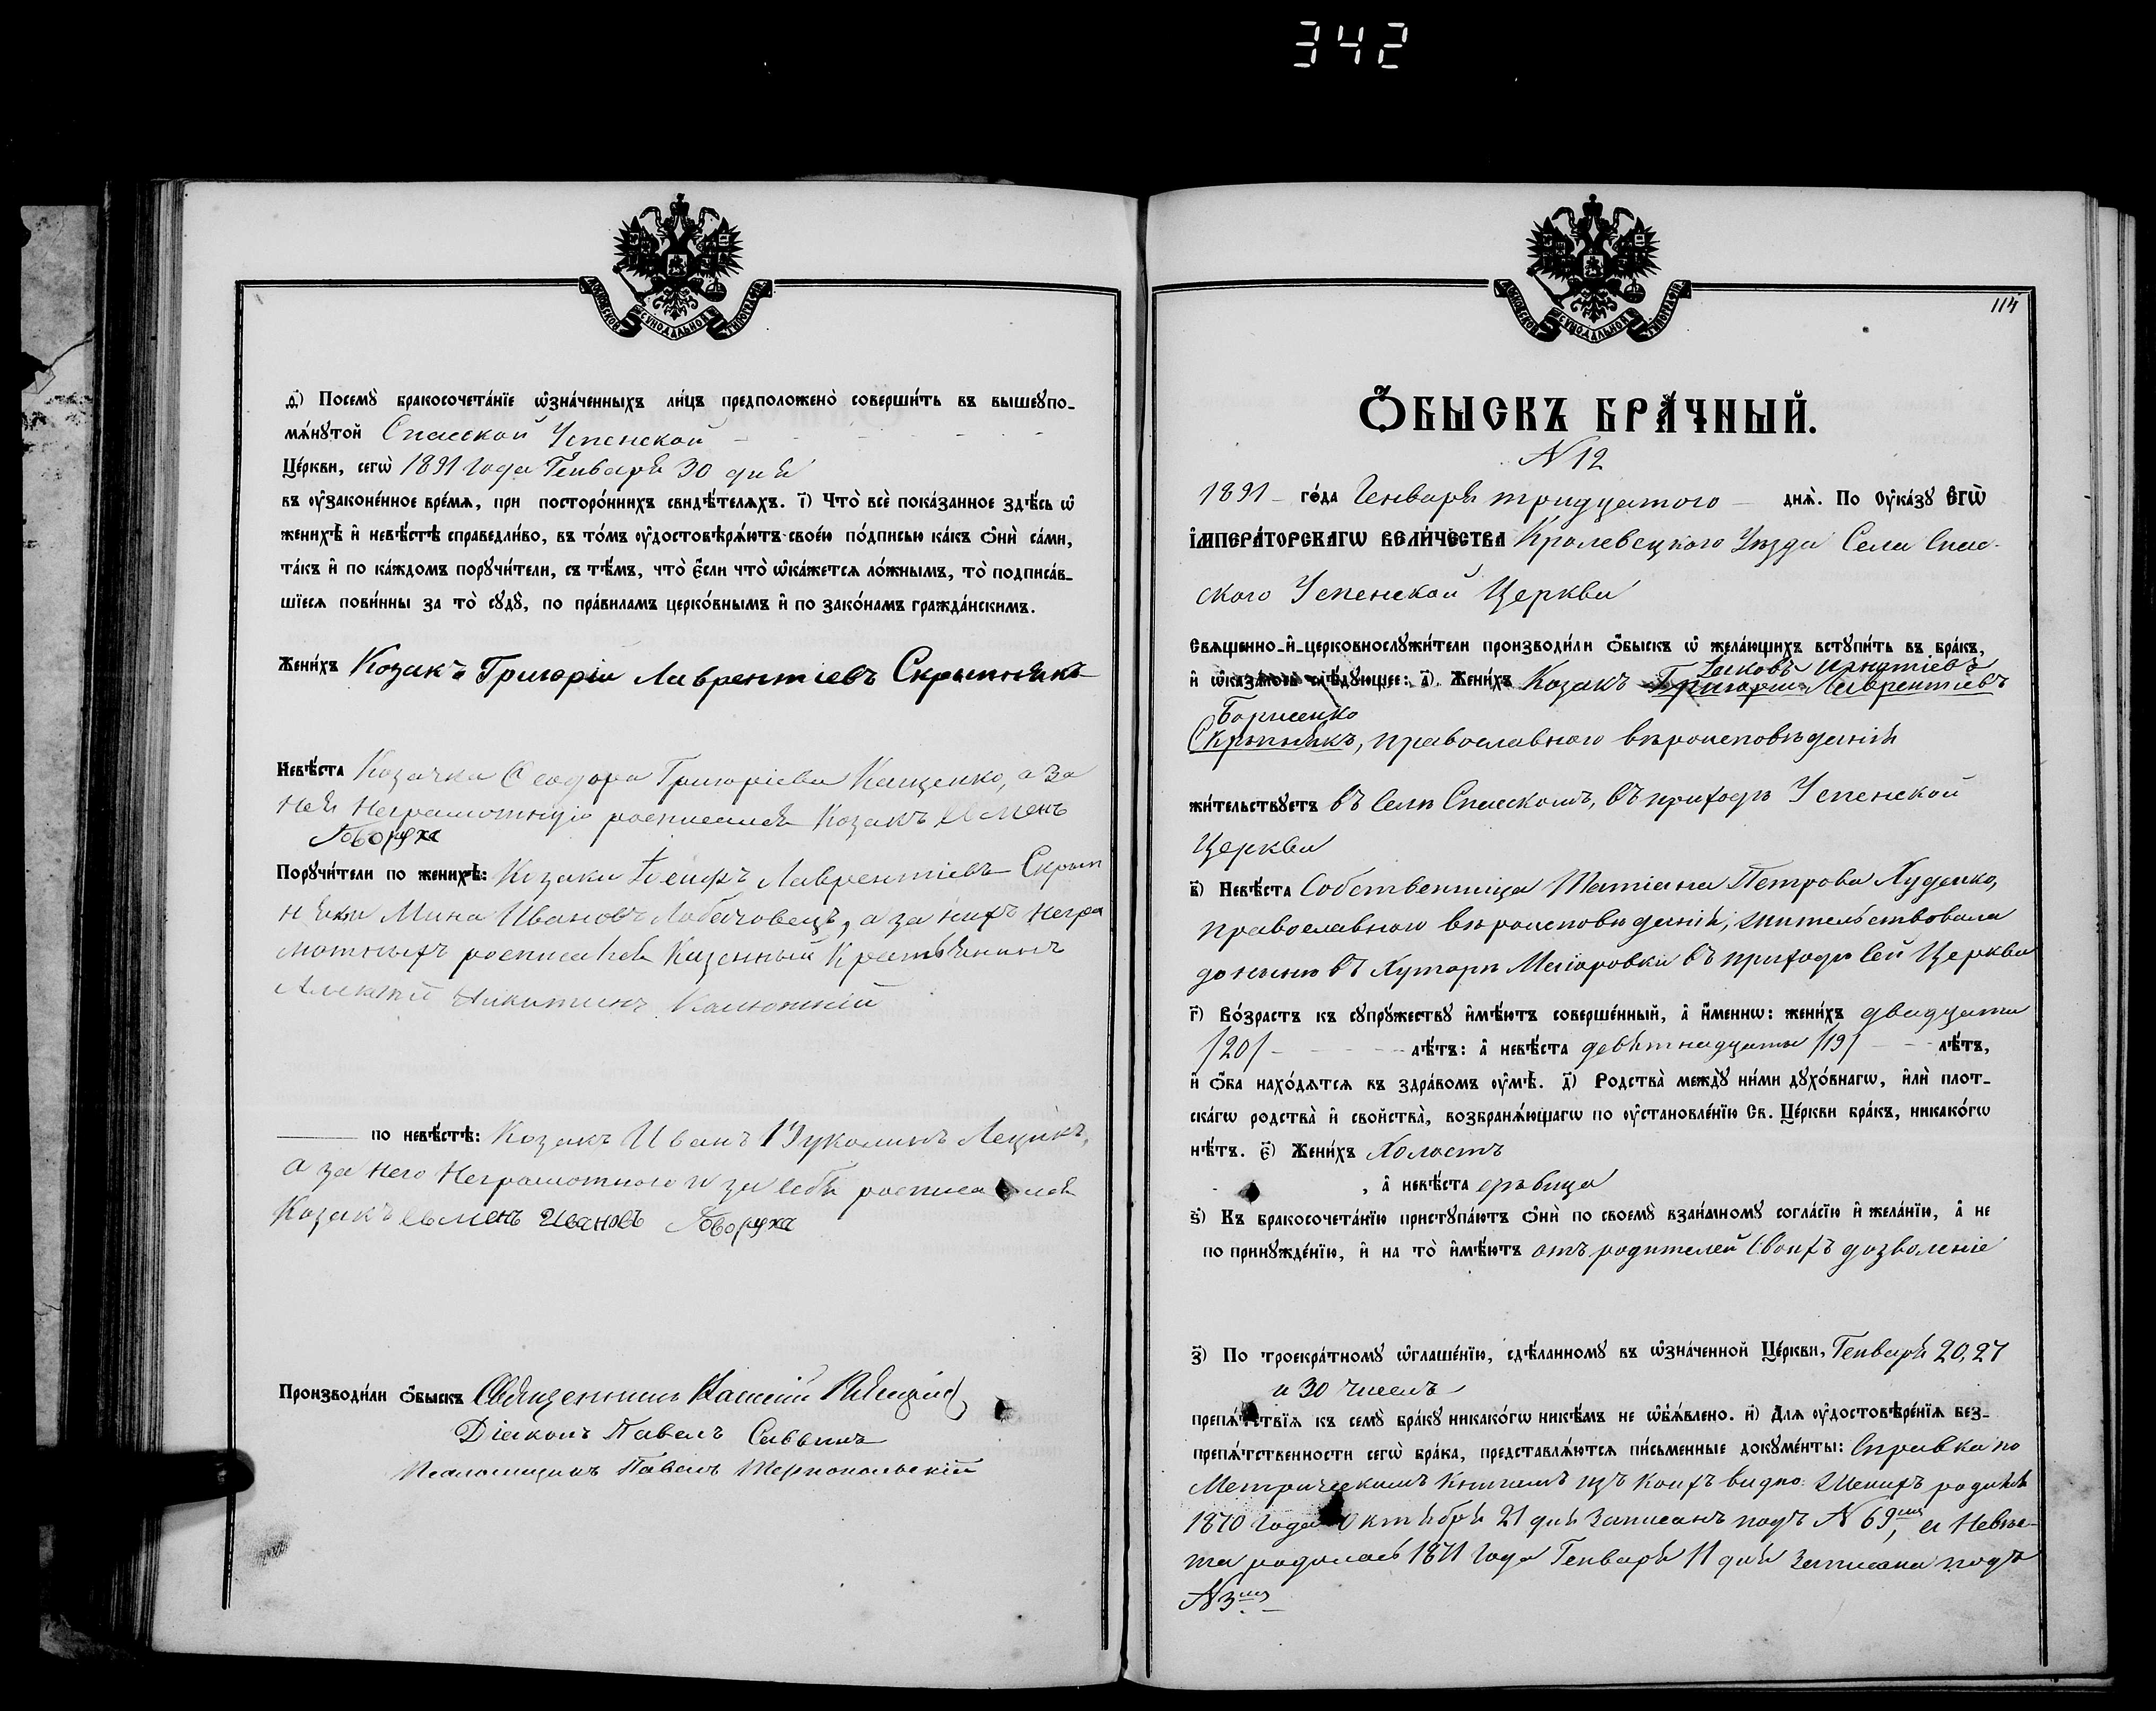 342
МОСКОВСКОЙ СѴНОДАЛЬНОЙ ТИПОГРАФІИ
д҃) Посемꙋ̀ бракосочета́нїе ѡ҆зна́ченныхъ ли́цъ предположено̀ соверши́ть въ вышеꙋпо-
мѧ́нꙋтой Спасской Успенской
Це́ркви, сегѡ̀ 1891 года Генваря 30 дня
въ ᲂу҆законе́нное вре́мѧ, при посторо́ннихъ свидѣ́телѧхъ. і҃) Что̀ всѐ пока́занное здѣ́сь ѡ҆
женихѣ̀ и҆ невѣ́стѣ справедли́во, въ то́мъ ᲂу҆достовѣрѧ́ютъ свое́ю по́дписью ка́къ ѻ҆нѝ са́ми,
та́къ и҆ по ка́ждомъ порꙋчи́тели, съ тѣ́мъ, что̀ є҆́сли что̀ ѡ҆ка́жетсѧ ло́жнымъ, то̀ подписа́в-
шїесѧ пови́нны за то̀ сꙋдꙋ̀, по пра́виламъ церко́внымъ и҆ по зако́намъ гражда́нскимъ.
Жени́хъ Козакъ Григорій Лаврентіевъ Скрыпнякъ
Невѣ́ста Козачка Ѳеодора Григоріева Кащенко, а за
нея неграмотную росписался Козакъ Семенъ
Говоруха
Порꙋчи́тели по женихѣ̀: Козаки Іосифъ Лаврентіевъ Скрып
някъ Мина Ивановъ, а за нихъ негра
мотныхъ росписался Казенный Крестьянинъ
Алексѣй Никитинъ
по невѣ́стѣ: Козакъ Иванъ Лещикъ,
а за него неграмотного и за себя росписался
Козакъ Семенъ Ивановъ Говоруха
Производи́ли ѻ҆́быскъ Священникъ Василій
Діаконъ Павелъ Саввинъ
Псаломщикъ Павелъ Тернопольскій
МОСКОВСКОЙ СѴНОДАЛЬНОЙ ТИПОГРАФІИ
114
Ѻ҆́БЫСКЪ БРА́ЧНЫЙ.
N 12
1891 го́да Генваря тридцатого днѧ̀. По ᲂу҆ка́зꙋ Є҆ГѠ̀
І҆МПЕРА́ТОРСКАГѠ ВЕЛИ́ЧЕСТВА Кролевецкого Уѣзда Села Спас-
ского Успенской Церкви
Свѧщенно-и҆-церковнослꙋжи́тели производи́ли ѻ҆́быскъ ѡ҆ жела́ющихъ встꙋпи́ть въ бра́къ,
Іаковъ Игнатіевъ
и҆ ѡ҆каза́лось слѣ́дꙋющее: а҃) Жени́хъ Козакъ Григорій Лаврентіевъ
Борисенко
Скрыпнякъ, православного вѣроисповѣданія
жи́тельствꙋетъ въ Селѣ Спасскомъ, въ приходѣ Успенской
Церкви
в҃) Невѣ́ста Собственница Татіана Петрова Худенко,
православного вѣроисповѣданія, жительствовала
донынѣ въ Хуторѣ Маіоровки въ приходѣ сей Церкви
г҃) Во́зрастъ къ сꙋпрꙋ́жествꙋ и҆мѣ́ютъ соверше́нный, а҆ и҆́меннѡ: жени́хъ двадцати
/20/ лѣ́тъ: а҆ невѣ́ста девятнадцати /19/ лѣ́тъ,
и҆ ѻ҆́ба нахо́дѧтсѧ въ здра́вомъ ᲂу҆мѣ̀. д҃) Родства̀ междꙋ̀ ни́ми дꙋхо́внагѡ, и҆лѝ плот-
ска́гѡ родства̀ и҆ сво́йства̀, возбранѧ́ющагѡ по ᲂу҆становле́нїю Св. Це́ркви бра́къ, никако́гѡ
нѣ́тъ. є҃) Жени́хъ Холостъ
, а҆ невѣ́ста дѣвица
ѕ҃) Къ бракосочета́нїю пристꙋпа́ютъ ѻ҆нѝ по своемꙋ̀ взаи́мномꙋ согла́сїю и҆ жела́нїю, а҆ не
по принꙋжде́нїю, и҆ на то̀ и҆мѣ́ютъ отъ родителей своихъ дозволеніе
з҃) По троекра́тномꙋ ѡ҆глаше́нїю, сдѣ́ланномꙋ въ ѡ҆зна́ченной Це́ркви, Генваря 20, 27
и 30 чиселъ
препѧ́тствїѧ къ семꙋ̀ бра́кꙋ никако́гѡ никѣ́мъ не ѡ҆б̾ѧ́влено. и҃) Длѧ ᲂу҆достовѣре́нїѧ без-
препѧ́тственности сегѡ̀ бра́ка, представлѧ́ютсѧ пи́сьменные докꙋме́нты: Справка по
Метрическимъ книгамъ изъ коихъ видно: Женихъ родился
1870 года Октября 21 дня записанъ подъ N 69мъ, а Невѣс-
та родилась 1871 года Генваря 11 дня записана подъ
N 3мъ